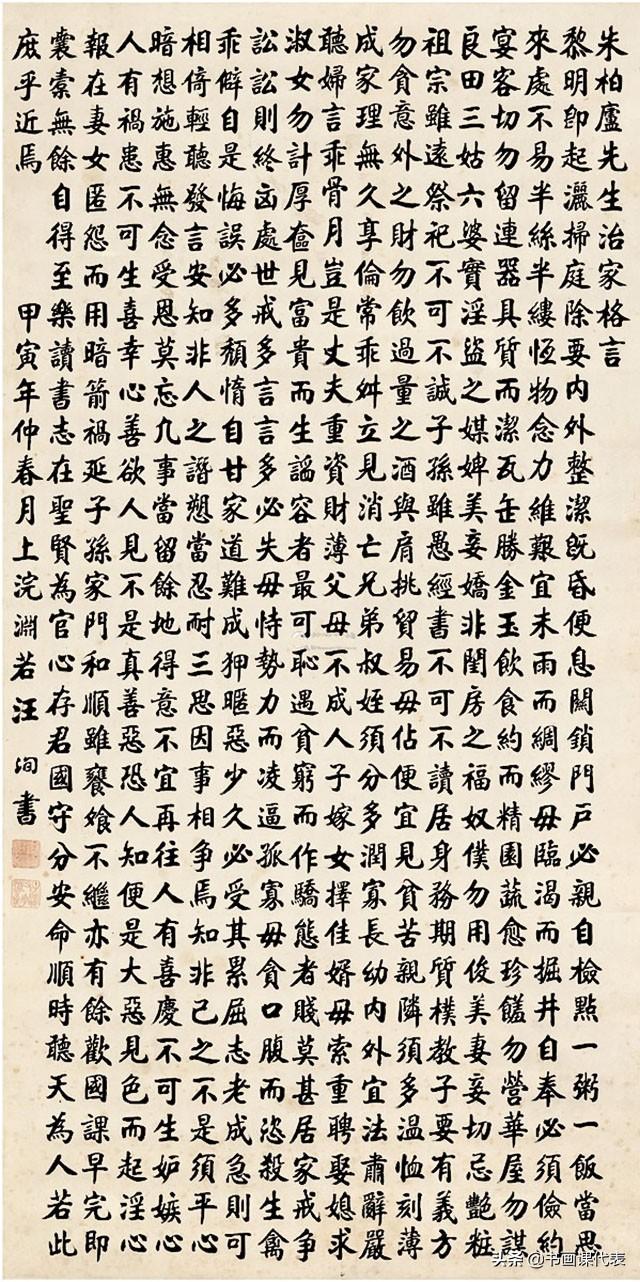 朱柏廬先生治家格言
黎明即起灑掃庭除要內外整潔既昏便息關鎖門戶必親自檢點一粥一飯當思
來處不易半絲半縷恆物念力維艱宜未雨而綢繆毋臨渴而掘井自奉必須儉約
宴客切勿留連器具質而潔瓦缶勝金玉飲食約而精園蔬愈珍饈勿營華屋勿謀
良田三姑六婆實淫盜之媒婢美妾嬌非閨房之福奴僕勿用俊美妻妾切忌艷粧
祖宗雖遠祭祀不可不誠子孫雖愚經書不可不讀居身務期質樸教子要有義方
勿貪意外之財勿飲過量之酒與肩挑貿易毋佔便宜見貧苦親隣須多溫恤刻薄
成家理無久享倫常乖舛立見消亡兄弟叔姪須分多潤寡長幼內外宜法肅辭嚴
聽婦言乖骨月豈是丈夫重資財薄父母不成人子嫁女擇佳婿毋索重聘娶媳求
淑女勿計厚奩見富貴而生謟容者最可恥遇貧窮而作驕態者賤莫甚居家戒爭
訟訟則終凶處世戒多言言多必失毋恃勢力而凌逼孤寡毋貪口腹而恣殺生禽
乖僻自是悔誤必多頹惰自甘家道難成狎暱惡少久必受其累屈志老成急則可
相倚輕聽發言安知非人之譖愬當忍耐三思因事相爭焉知非己之不是須平心
暗想施惠無念受恩莫忘凡事當留餘地得意不宜再往人有喜慶不可生妒嫉心
人有禍患不可生喜幸心善欲人見不是真善惡恐人知便是大惡見色而起淫心
報在妻女匿怨而用暗箭禍延子孫家門和順雖饔飧不繼亦有餘歡國課早完即
囊橐無餘自得至樂讀書志在聖賢為官心存君國守分安命順時聽天為人若此
庶乎近焉 甲寅年仲春月上浣淵若汪洵書
头条 @书画课代表